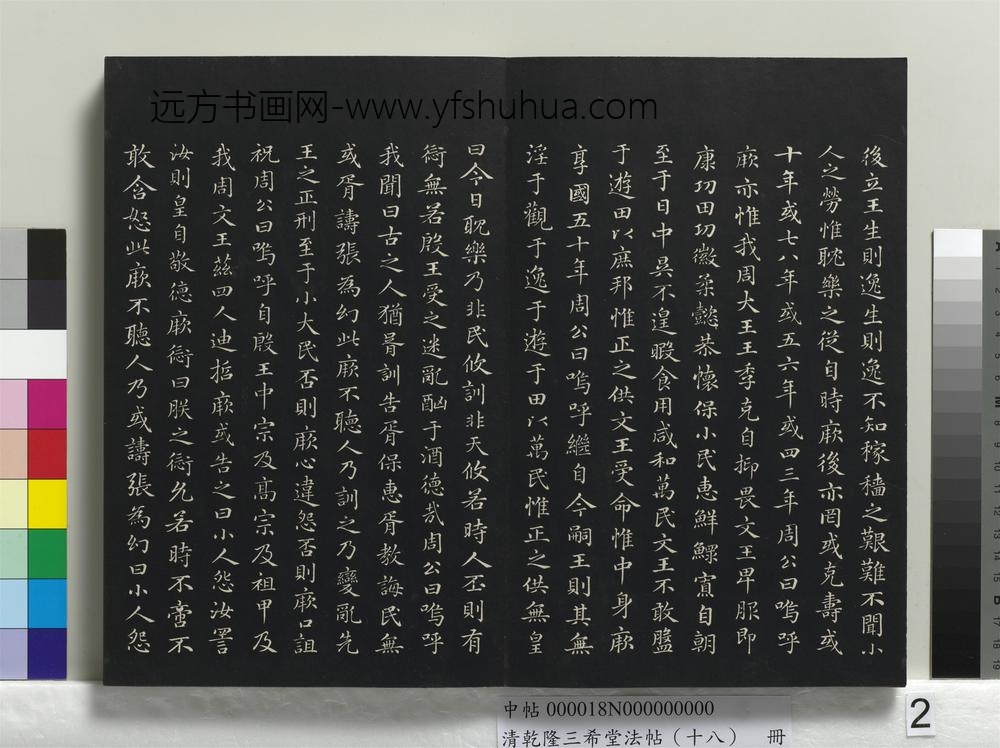 远方书画网-www.yfshuhua.com
後立王生則逸生則逸不知稼穡之艱難不聞小
人之勞惟耽樂之從自時厥後亦罔或克壽或
十年或七八年或五六年或四三年周公曰嗚呼
厥亦惟我周大王王季克自抑畏文王卑服即
康功田功徽柔懿恭懷保小民惠鮮鰥寡自朝
至于日中昃不遑暇食用咸和萬民文王不敢盤
于遊田以庶邦惟正之供文王受命惟中身厥
享國五十年周公曰嗚呼繼自今嗣王則其無
淫于觀于逸于遊于田以萬民惟正之供無皇
曰今日耽樂乃非民攸訓非天攸若時人丕則有
愆無若殷王受之迷亂酗于酒德哉周公曰嗚呼
我聞曰古之人猶胥訓告胥保惠胥教誨民無
或胥譸張為幻此厥不聽人乃訓之乃變亂先
王之正刑至于小大民否則厥心違怨否則厥口詛
祝周公曰嗚呼自殷王中宗及高宗及祖甲及
我周文王茲四人迪哲厥或告之曰小人怨汝詈
汝則皇自敬德厥愆曰朕之愆允若時不啻不
敢含怒此厥不聽人乃或譸張為幻曰小人怨
中帖 000018N000000000
清乾隆三希堂法帖（十八） 冊
2